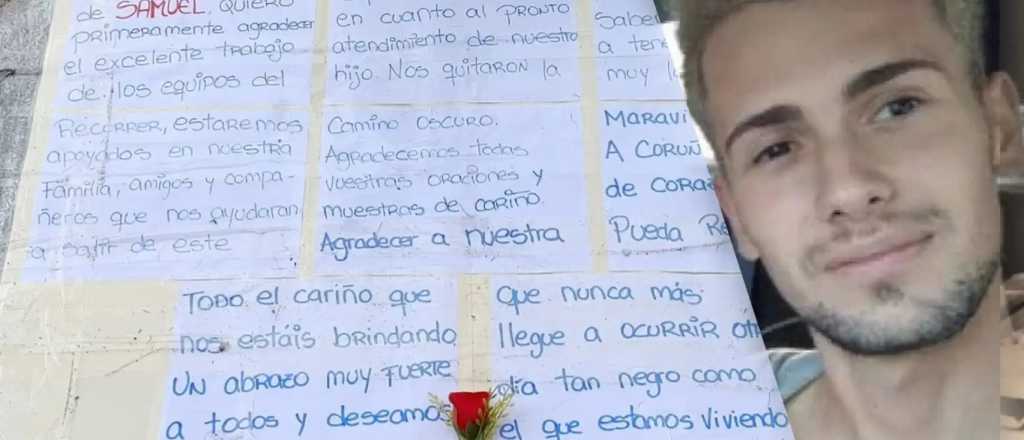 de SAMUEL, QUIERO
primeramente agradecer
el excelente trabajo
de los equipos del
en cuanto al PRONTO
atendimiento de nuestro
hijo. Nos quitaron la
a
muy
RECORRER, estaremos
apoyados en nuestra
Familia, amigos y compa-
ñeros que nos ayudaran
a salir de este
Camino oscuro.
Agradecemos todas
vuestras oraciones y
muestras de cariño.
Agradecer a nuestra
A CORUÑ
de
Pueda
TODO el cariño que
nos estáis brindando
UN abrazo muy FUERTE
a todos y deseamos
que nunca más
llegue a OCURRIR
día tan negro como
el que estamos viviendo